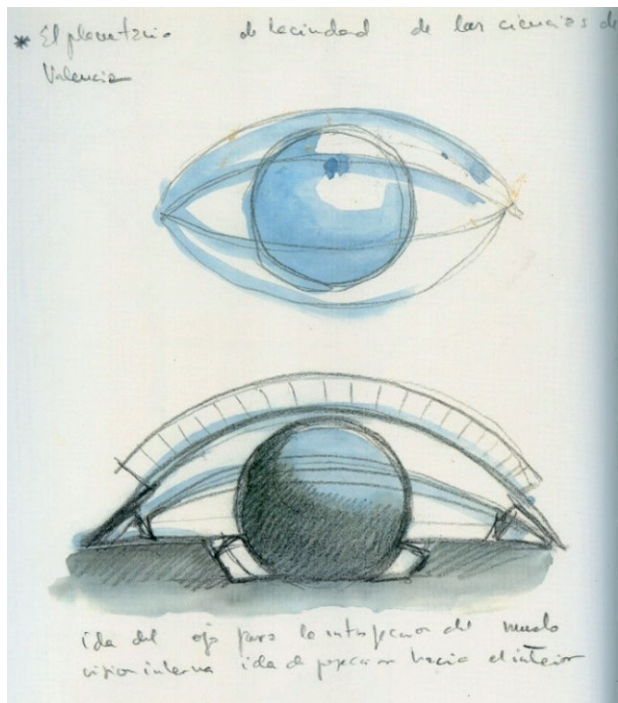 * El planetario de la ciudad de las ciencias de
Valencia
ida del ojo para la del mundo
vision interna ida de hacia el interior